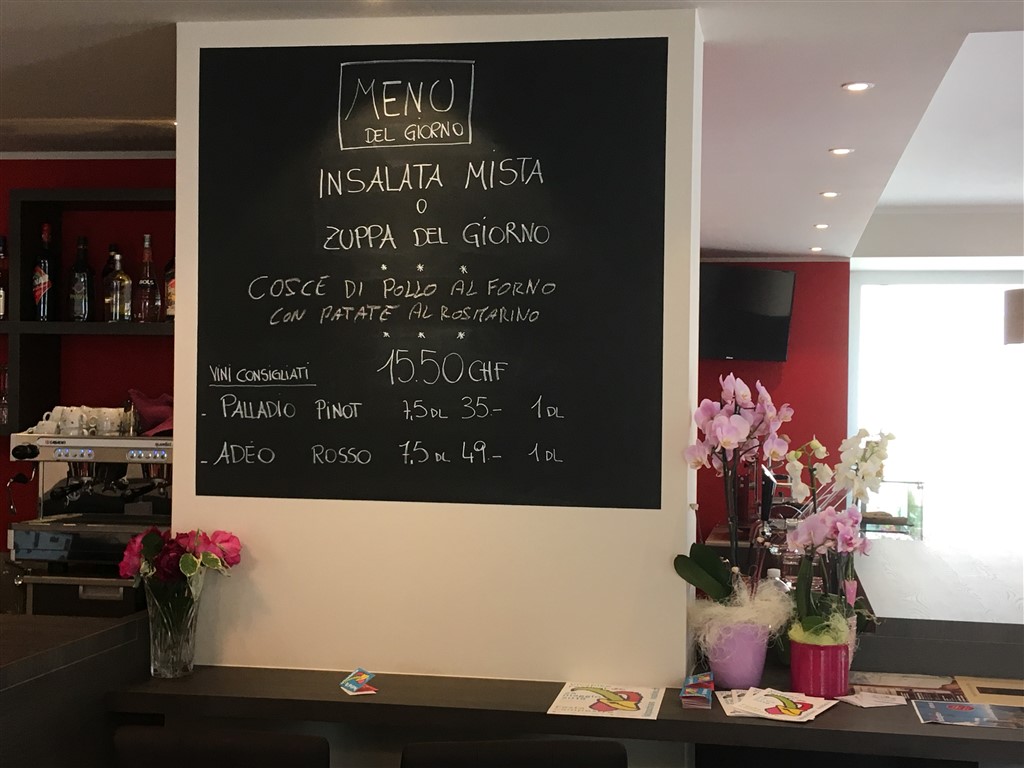 MENU
DEL GIORNO
INSALATA MISTA
O
ZUPPA DEL GIORNO
* * *
COSCE DI POLLO AL FORNO
CON PATATE AL ROSMARINO
* * *
15.50 CHF
VINI CONSIGLIATI
- PALLADIO PINOT 7,5 DL 35.- 1 DL
- ADÉO ROSSO 7,5 DL 49.- 1 DL